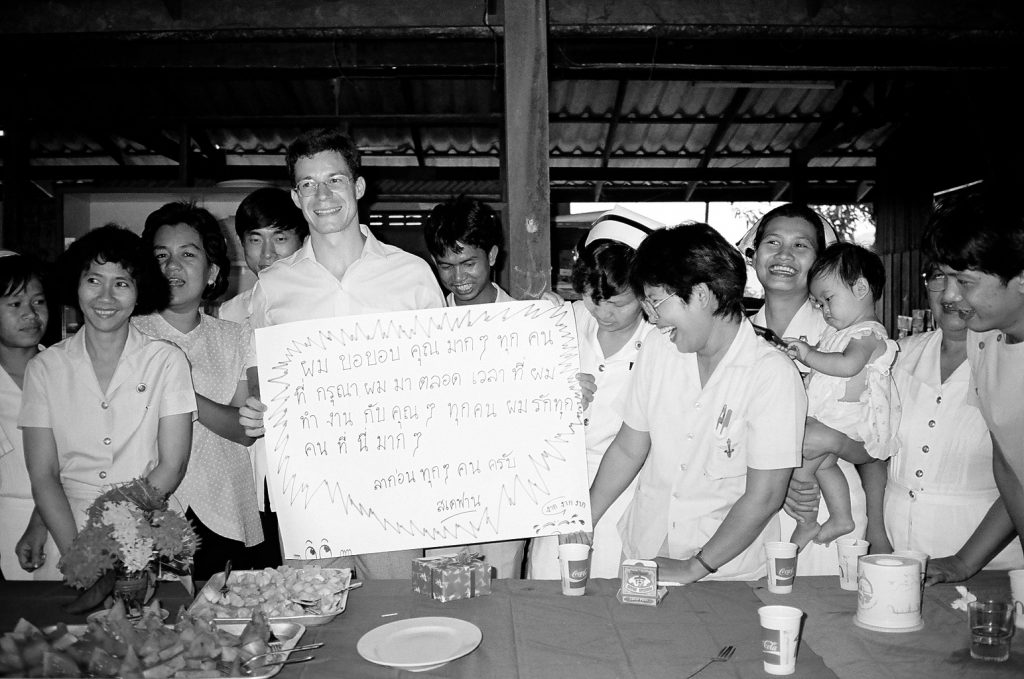 ผม ขอขอบ คุณ มากๆ ทุก คน
ที่ กรุณา ผม มา ตลอด เวลา ที่ ผม
ทำ งาน กับ คุณ ๆ ทุกคน ผม รักทุก
คน ที่ นี้ มาก ๆ
ลาก่อน ทุกๆ คน ครับ
สเตฟาน
Coca-Cola
Coca-Cola